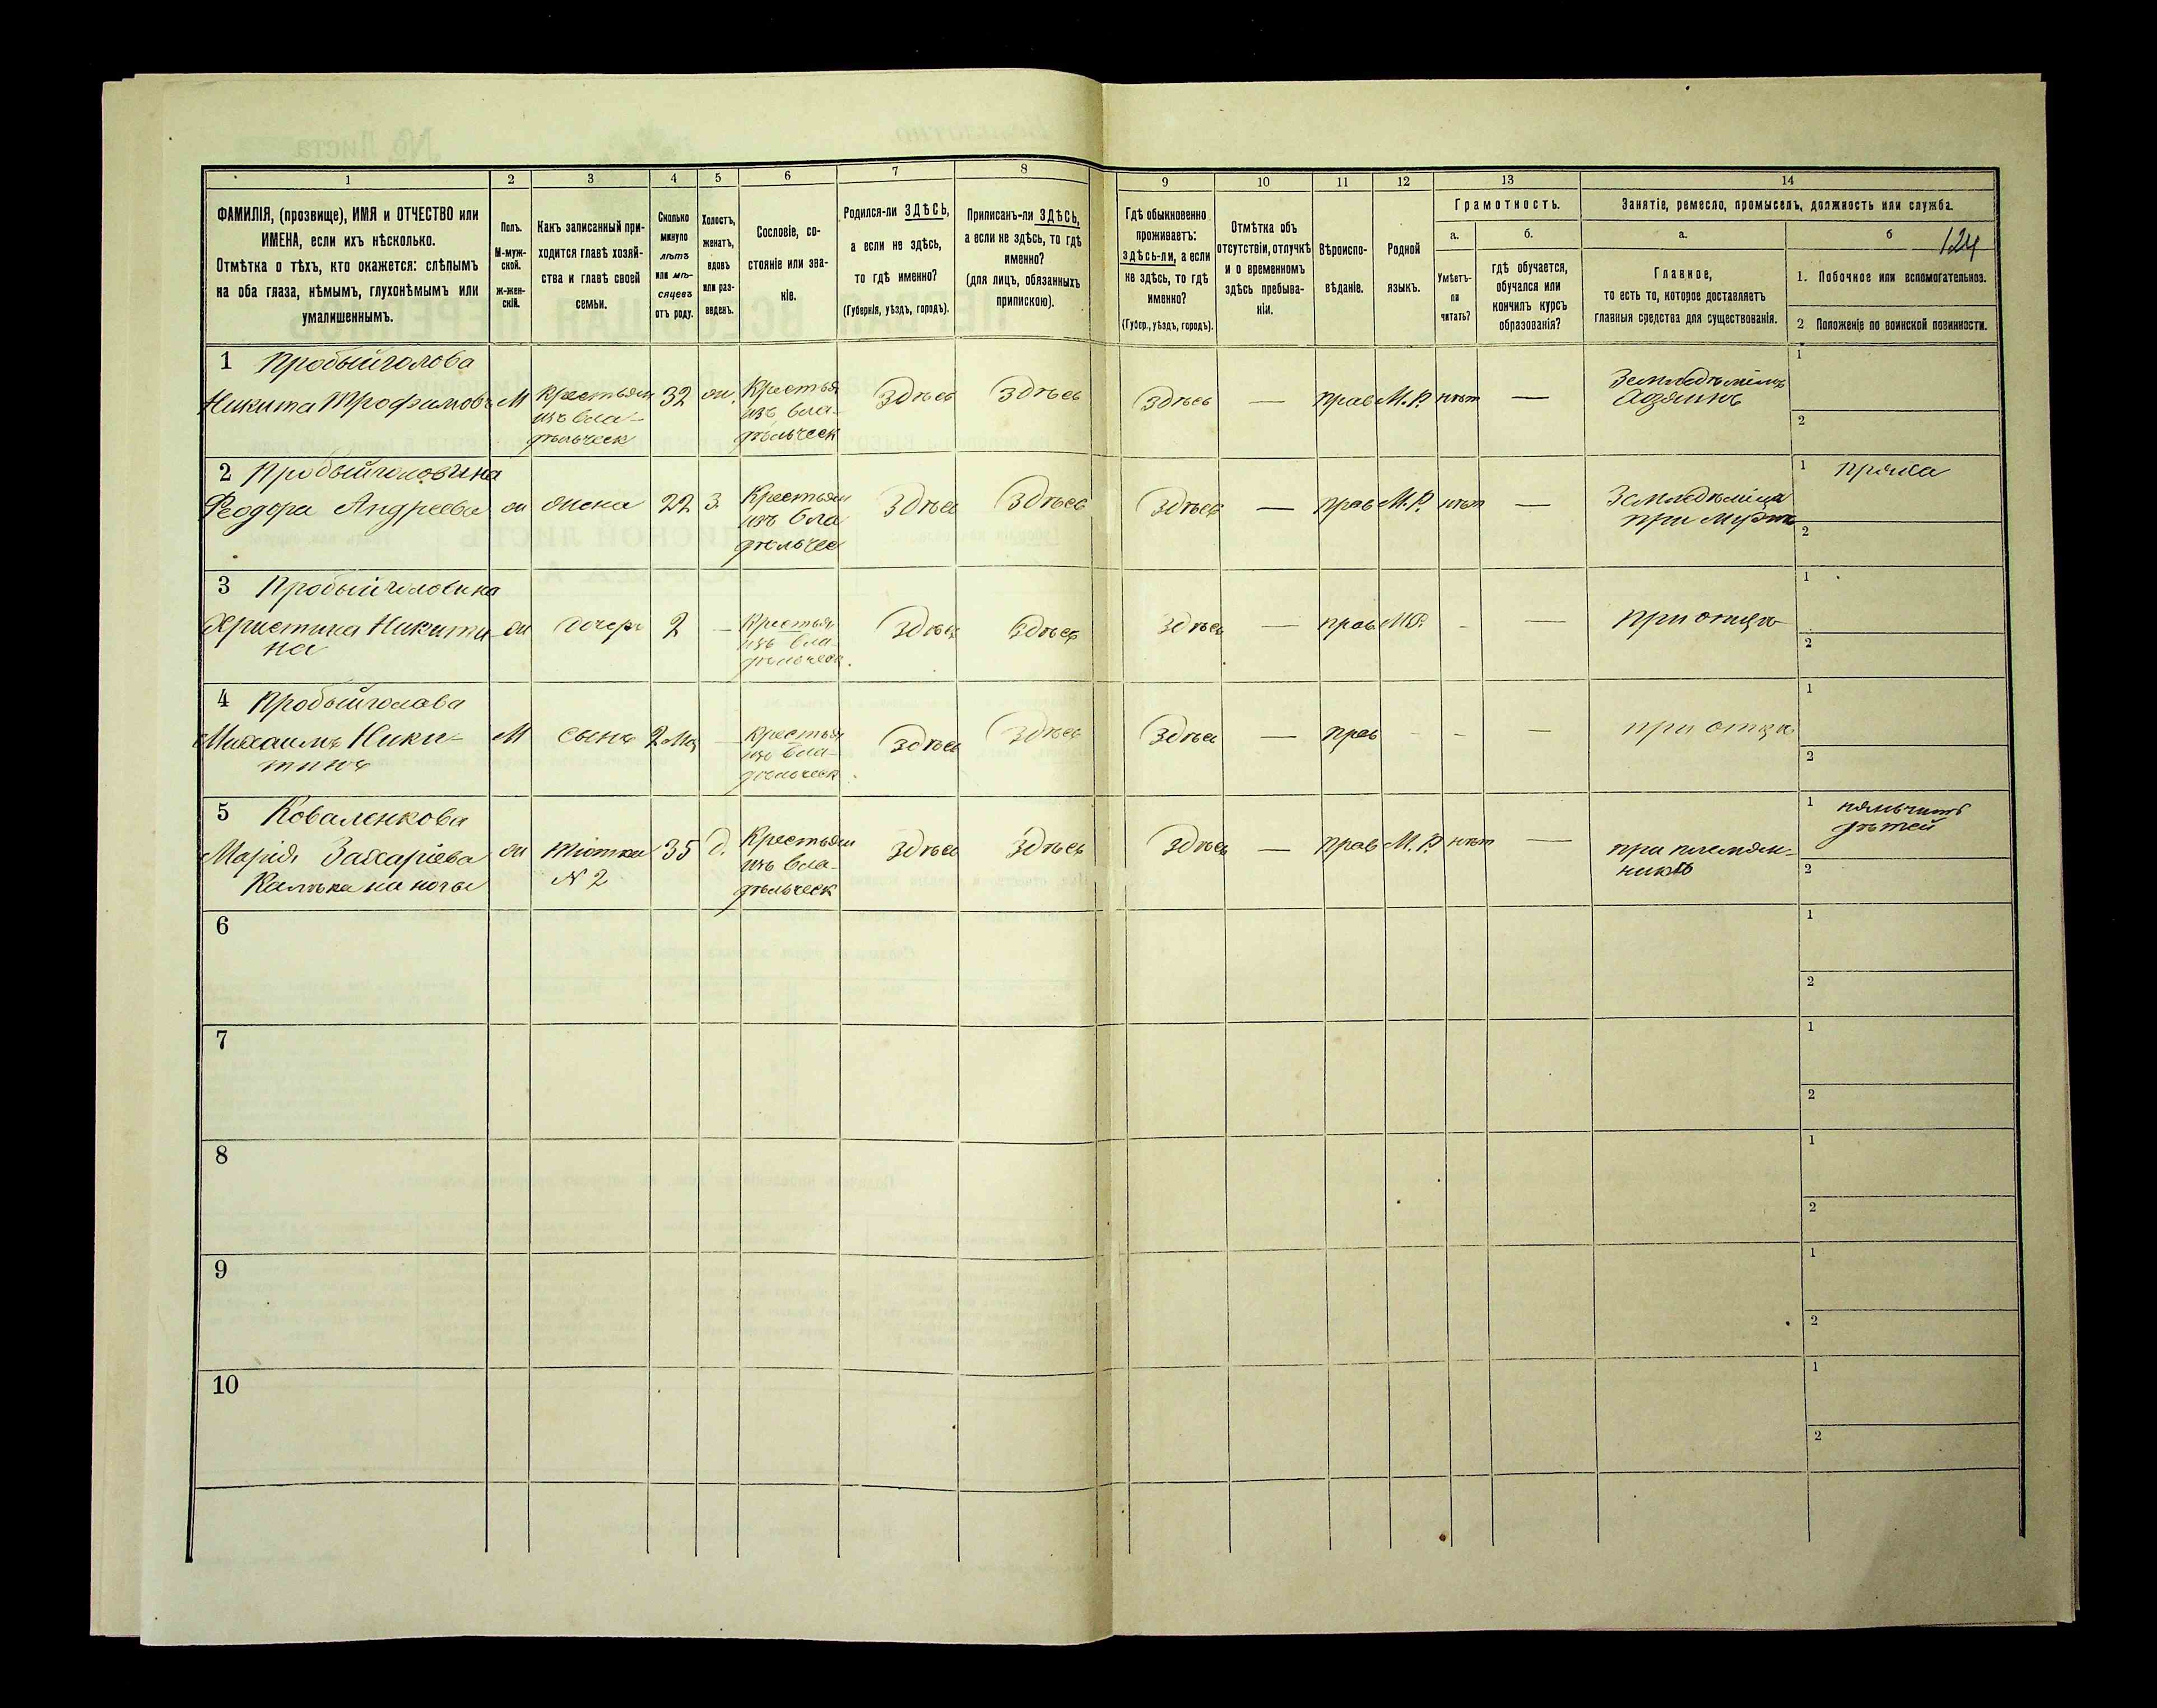 1 2 3 4 5 6 7 8 9 10 11 12 13 14
ФАМИЛІЯ, (прозвище), ИМЯ и ОТЧЕСТВО или
ИМЕНА, если ихъ нѣсколько.
Отмѣтка о тѣхъ, кто окажется: слѣпымъ
на оба глаза, нѣмымъ, глухонѣмымъ или
умалишеннымъ.
Полъ.
М-муж-
ской.
Ж-жен-
скій.
Какъ записанный при-
ходится главѣ хозяй-
ства и главѣ своей
семьи.
Сколько
минуло
лѣтъ
или мѣ-
сяцевъ
отъ роду.
Холостъ,
женатъ,
вдовъ
или раз-
веденъ.
Сословіе, со-
стояніе или зва-
ніе.
Родился-ли ЗДѢСЬ,
а если не здѣсь,
то гдѣ именно?
(Губернія, уѣздъ, городъ).
Приписанъ-ли ЗДѢСЬ,
а если не здѣсь, то гдѣ
именно?
(для лицъ, обязанныхъ
припискою).
Гдѣ обыкновенно
проживаетъ:
здѣсь-ли, а если
не здѣсь, то гдѣ
именно?
(Губер., уѣздъ, городъ).
Отмѣтка объ
отсутствіи, отлучкѣ
и о временномъ
здѣсь пребыва-
ніи.
Вѣроиспо-
вѣданіе.
Родной
языкъ.
Грамотность.
а.
Умѣетъ-
ли
читать?
б.
гдѣ обучается,
обучался или
кончилъ курсъ
образованія?
Занятіе, ремесло, промыселъ, должность или служба.
а.
Главное,
то есть то, которое доставляетъ
главныя средства для существованія.
б
124
1. Побочное или вспомогательное.
2 Положеніе по воинской повинности.
1 Пробыйголова
Никита Трофимовъ М Крестьян 32 ж. Крестья Здѣсь Здѣсь Здѣсь — прав М.Р. нѣт — Земледѣлецъ 1
изъ вла- изъ вла- Хозяинъ
дѣльческ дѣльческ 2
2 Пробыйголовина 1 пряха
Феодора Андреева ж жена 22 з. Крестьян Здѣсь Здѣсь Здѣсь — прав М.Р. нѣт — Земледѣлица
изъ вла при мужѣ
дѣльчес 2
3 Пробыйголовина 1
Христина Никити- ж дочерь 2 — Крестья Здѣсь Здѣсь Здѣсь — прав М.Р. - — при отцѣ
на изъ вла- 2
дѣльческ.
4 Пробыйголова 1
Михаилъ Ники- М сынъ 2 мц — Крестья Здѣсь Здѣсь Здѣсь — прав - - — при отцѣ
тинъ изъ вла- 2
дѣльческ.
5 Коваленкова 1 нянчить
дѣтей
Марія Захаріева ж тіотка 35 д. Крестьян Здѣсь Здѣсь Здѣсь — прав М.Р. нѣт — при племян-
Калѣка на ноги N 2 изъ вла- никѣ 2
дѣльческ
6 1
2
7 1
2
8 1
2
9 1
2
10 1
2